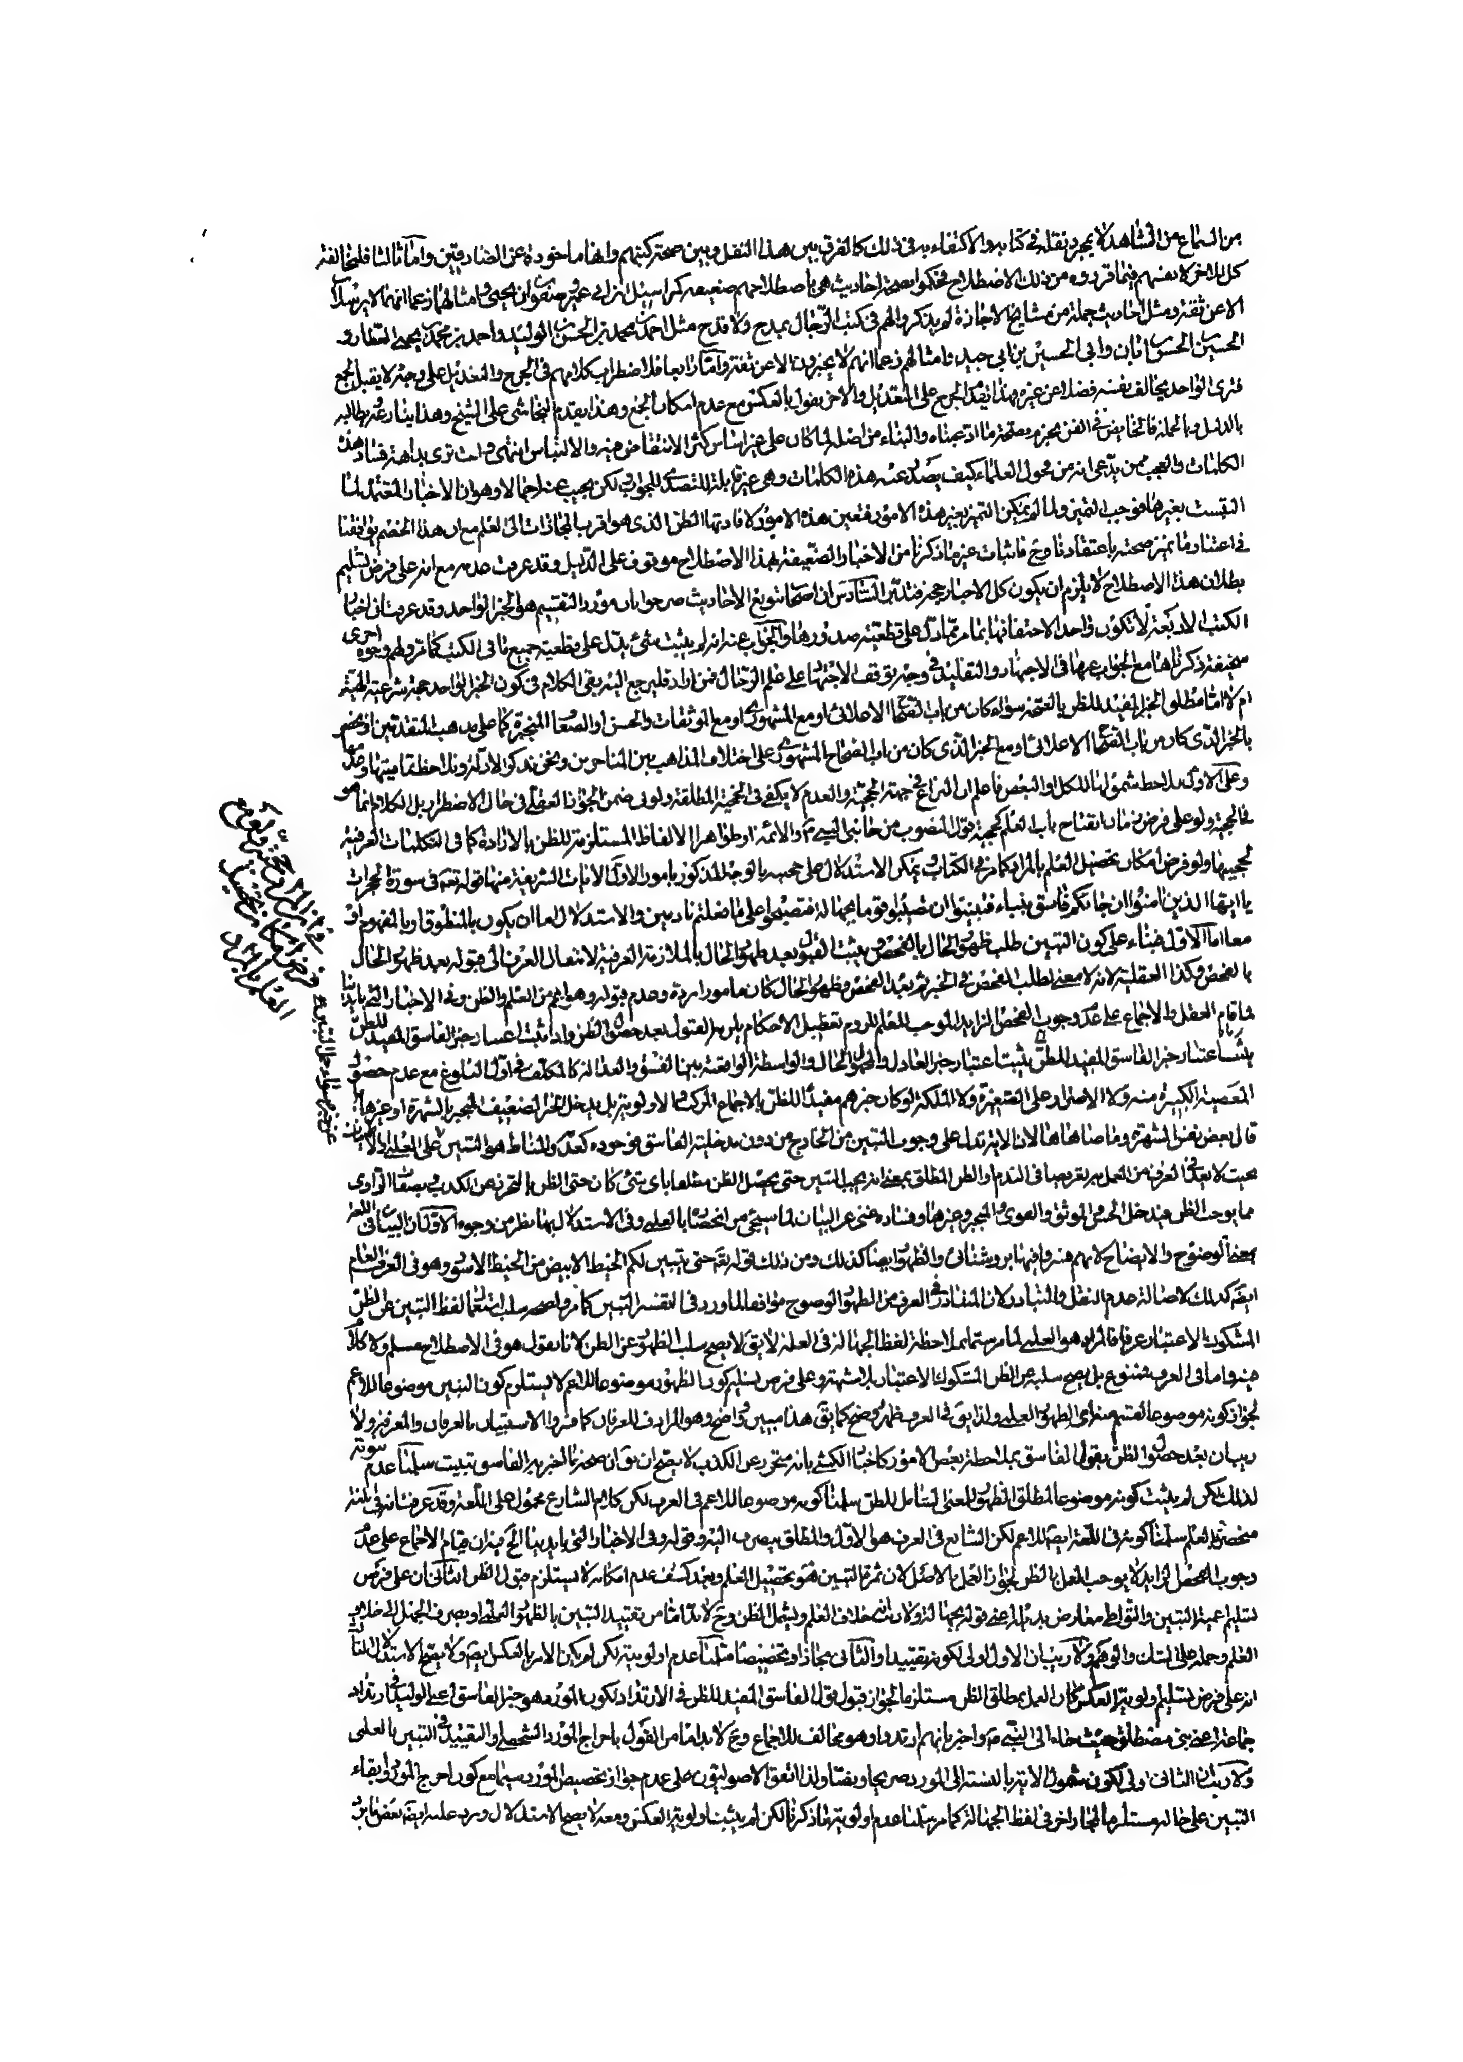 من السماع عن المشاهد لا بمجرد نقله في كتابه والاكتفاء به في ذلك كالفرق بين هذا النقل وبين صحة كتبهم وانها ماخوذة عن الصادقين واما ثالثا فلمخالفة
كل للاخر لانفسهم فيما قرروه من ذلك الاصطلاح فحكموا بصحة احاديث هي باصطلاحهم ضعيفة كمراسيل ابن ابي عمير وصفوان بن يحيى وامثالهما زعما انهما لا يرسلان
الا عن ثقة ومثل احاديث جملة من مشايخ الاجازة لم يذكروا لهم في كتب الرجال بمدح ولا قدح مثل احمد بن محمد بن الحسن بن الوليد واحمد بن محمد بن يحيى العطار و
الحسين بن الحسن بن ابان وابي الحسين بن ابي جيد وامثالهم زعما انهم لا يخبرون الا عن ثقة واما رابعا فلاضطراب كلامهم في الجرح والتعديل على وجه لا يقبل الجمع
فترى الواحد يخالف نفسه فضلا عن غيره فهذا يقدم الجرح على التعديل والاخر يقول بالعكس مع عدم امكان الجمع وهذا يقدم النجاشي على الشيخ وهذا ينازعه ويطالبه
بالدليل وبالجملة فالخائض في الفن يجزم بصحة ما ادعيناه والبناء من اصله لما كان على غير اساس كثر الانتقاض فيه والالتباس انتهى وانت ترى بداهة فساد هذه
الكلمات والعجب ممن يدعي انه من فحول العلماء كيف يصدر عنه هذه الكلمات وهي غير قابلة للتصدي للجواب لكن نجيب عنه اجمالا وهو ان الاخبار المعتمد لما
التبست بغيرها فوجب التميز ولما لم يمكن التميز بغير هذه الامور فتعين هذه الامور لافادتها الظن الذي هو اقرب المجازات الى العلم مع ان هذا الخصم يوافقنا
في اعتبار ما يميز صحته باعتقاده فاثبات غير ما ذكرنا من الاخبار الضعيفة بهذا الاصطلاح موقوف على الدليل وقد عرفت عدمه مع انه على فرض تسليم
بطلان هذا الاصطلاح لا يلزم ان يكون كل الاخبار حجة فتدبر السادس ان اصحاب تنويع الاحاديث صرحوا بان مورد التقسيم هو الخبر الواحد وقد عرفت ان اخبار
الكتب الاربعة لا تكون واحدا لاحتفافها بما مر مما دل على قطعية صدورها والجواب عنه انه لم يثبت شئ يدل على قطعية جميع ما في الكتب كما مر ولهم وجوه اخرى
سخيفة ذكرناها مع الجواب عنها في الاجتهاد والتقليد في وجه توقف الاجتهاد على علم الرجال فمن اراد فليرجع اليه بقي الكلام في كون الخبر الواحد حجة شرعية
ام لا اما مطلق الخبر المفيد للظن بالصحة سواء كان من باب الصحاح الاعلائي او مع المشهوري او مع الموثقات والحسن او الضعاف المنجبرة كما على مذهب المتقدمين او خصص
بالخبر الذي كان من باب الصحاح الاعلائي او مع الخبر الذي كان من باب الصحاح المشهوري على اختلاف المذاهب بين المتاخرين ونحن نذكر الادلة ونلاحظ تماميتها وعدمها
وعلى الاول نلاحظ شمولها للكل والبعض فاعلم ان النزاع في جهة الحجية والعدم لا يكفي في الحجية المطلقة ولو في ضمن الجواز العقلي في حال الاضطرار بل الكلام انما هو
في الحجية ولو على فرض زمان انفتاح باب العلم كحجية قول المنصوب من جانبي النبي ص والائمة او ظواهر الالفاظ المستلزمة للظن بالارادة كما في المكلمات العرفية
لحجيتها ولو فرض امكان تحصيل العلم بالمراد كما مر في الكتاب ويمكن الاستدلال على حجيته بالوجه المذكور بامور الاول الايات الشريفة منها قوله تعه في سورة الحجرات
يا ايها الذين امنوا ان جائكم فاسق بنباء فتبينوا ان تصيبوا قوما بجهالة فتصبحوا على ما فعلتم نادمين والاستدلال اما ان يكون بالمنطوق او بالمفهوم او
معا اما الاول فبناء على كون التبين طلب ظهور الحال بالفحص ويثبت القبول بعد ظهور الحال بالملازمة العرفية لانتقال العرف الى قبوله بعد ظهور الحال
بالفحص وكذا العقلية لانه لا معنى لطلب الفحص في الخبر ثم بعد الفحص وظهور الحال كان مامورا برده وعدم قبوله وهو اعم من العلم والظن وفي الاخبار التي بايدينا
لما قام العقل والاجماع على عدم وجوب الفحص الزايد الموجب للعلم للزوم تعطيل الاحكام يلزم القبول بعد حصول الظن واذا ثبت اعتبار خبر الفاسق المفيد للظن
يثبت اعتبار خبر الفاسق المفيد للظن يثبت اعتبار خبر العادل والمجهول الحال والواسطة الواقعة بين الفسق والعدالة كالمكلف في اول البلوغ مع عدم حصول
المعصية الكبيرة منه ولا الاصرار على الصغيرة ولا الملكة لو كان خبرهم مفيدا للظن بالاجماع المركب والاولوية بل يدخل الخبر الضعيف المنجبر بالشهرة او غيرها
قال بعض نفى الشهرة وما ضاهاها لان الاية تدل على وجوب التبين من الخارج من دون مدخلية الفاسق فوجوده كعدمه والمناط هو التبين على العمل
بحيث لا يعد في العرف من العمل بغير قوما في الندم او الظن المطلق بمعنى انه يجب التبين حتى يحصل الظن مطلقا باي شئ كان حتى الظن بالتحرز عن الكذب وبصفات الراوي
مما يوجب الظن فيدخل الحسن والموثق والقوي والمنجبر وغيرها وفساده غني عن البيان لما سيجئ من انحصاره بالعلمي وفي الاستدلال بها نظر من وجوه الاول ان البيان في اللغة
بمعنى الوضوح والايضاح لانهم فسروا فيها بروشنائى والظهور ايضا كذلك ومن ذلك قوله تعه حتى يتبين لكم الخيط الابيض من الخيط الاسود وهو في العرف العام
ايضه كذلك لاصالة عدم النقل والتبادر لان المتبادر في العرف من الظهور الوضوح موافقا لما ورد في التفسير التبين كما مر ولصحة سلب استعمال لفظ التبين عن الظن
المشكوك الاعتبار عرفا فالمراد هو العلمي لما مر سيما بملاحظة لفظ الجهالة في العلة لا يق لا يصح سلب الظهور عن الظن لانا نقول هو في الاصطلاح مسلم ولا كلام
فيه واما في العرف فممنوع بل يصح سلبه عن الظن المشكوك الاعتبار بلا شبهة وعلى فرض تسليم كون الظهور موضوعا للاعم لا يستلزم كون التبين موضوعا للاعم
لجواز كونه موضوعا لقسم منه اي الظهور العلمي ولذا يق في العرف ظهر ووضح كما يق هذا مبين وواضح وهو المرادف للعرفان كما فسروا الاستبيان بالعرفان والمعرفة ولا
ريب ان بعد حصول الظن بقول الفاسق بملاحظة بعض الامور كاخبار الكشي بانه متحرز عن الكذب لا يصح ان يق ان صحة ما اخبر به الفاسق تبينت سلمنا عدم ثبوته
لذلك لكن لم يثبت كونه موضوعا لمطلق الظهور المعنى الشامل للظن سلمنا كونه موضوعا للاعم في العرف لكن كلام الشارع محمول على اللغة وقد عرفت انه في اللغة
منحصر بالعلم سلمنا كونه في اللغة ايضه للاعم لكن الشايع في العرف هو الاول والمطلق ينصرف اليه وقوله وفي الاخبار التي بايدينا الخ فيه ان قيام الاجماع على عدم
وجوب الفحص الزايد لا يوجب العمل بالظن لجواز العمل بالاصل لان ثمرة التبين هو تحصيل العلم وبعد كشف عدم امكانه لا يستلزم قبول الظن الثاني ان على فرض
تسليم اعمية التبين والتواطي معارض بذيل الاية اعني قوله بجهالة ولا ريب انه خلاف العلم ويشمل الظن وح لا بد اما من تقييد التبين بالظهور العلمي او بصرف الجهل الى خلاف
العلم وحمله على الشك والوهم ولا ريب ان الاول اولى لكونه تقييدا والثاني مجازا وتخصيصا سلمنا عدم اولويته لكن لم يكن الامر بالعكس ايضه ولا يصح الاستدلال الثالث
انه على فرض تسليم اولوية العكس كان العمل بمطلق الظن مستلزما لجواز قبول قول الفاسق المفيد للظن في الارتداد لكون المورد هو خبر الفاسق اعني الوليد في ارتداد
جماعة اعني بني مصطلق حيث جاء الى النبي ص واخبر بانهم ارتدوا وهو مخالف للاجماع وح لا بد اما من القول باخراج المورد الشخصي او التقييد في التبين بالعلمي
ولا ريب ان الثاني اولى لكون شمول الاية بالنسبة الى المورد صريحا ونصا ولذا اتفق الاصوليون على عدم جواز تخصيص المورد سيما مع كون اخراج المورد وابقاء
التبين على حاله مستلزما لمجاز اخر في لفظ الجهالة كما مر سلمنا عدم اولوية ما ذكرنا لكن لم يثبت اولوية العكس ومعه لا يصح الاستدلال ويرد عليه ايضه بعض ما يرد